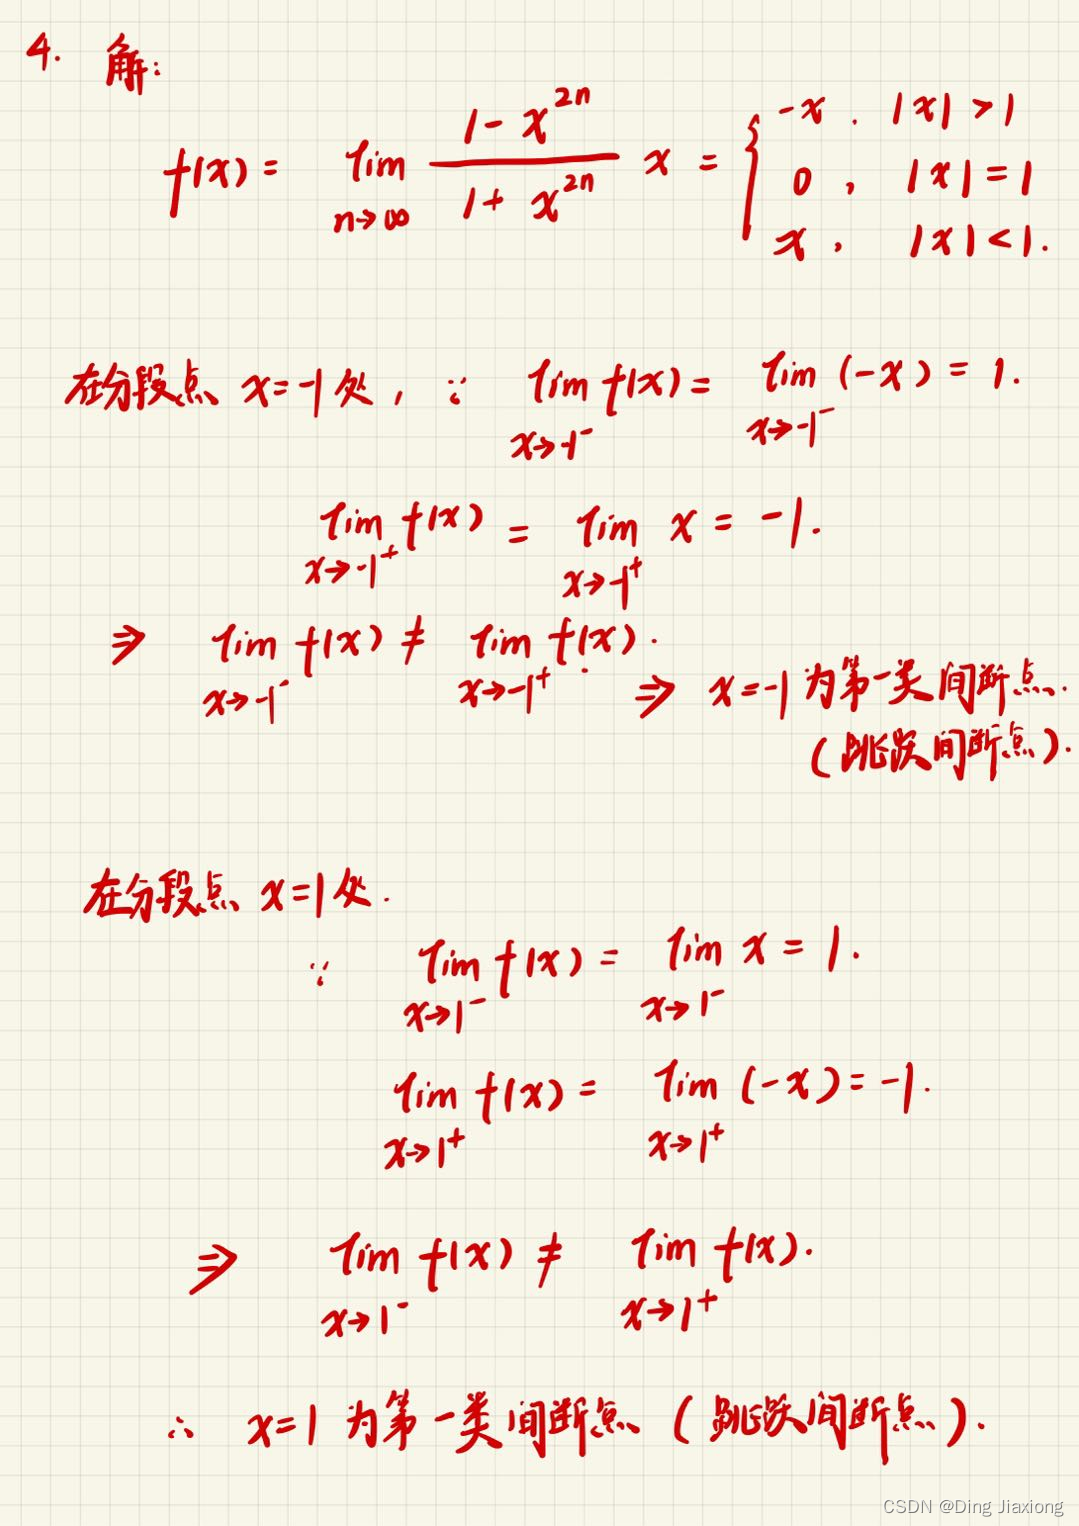 4. 解:
f(x) = lim n→∞ (1 - x^{2n})/(1 + x^{2n}) x = { -x, |x| > 1
0, |x| = 1
x, |x| < 1.
在分段点 x = -1 处, ∵ lim x→-1⁻ f(x) = lim x→-1⁻ (-x) = 1.
lim x→-1⁺ f(x) = lim x→-1⁺ x = -1.
⇒ lim x→-1⁻ f(x) ≠ lim x→-1⁺ f(x). ⇒ x = -1 为第一类间断点.
(跳跃间断点).
在分段点 x = 1 处.
∵ lim x→1⁻ f(x) = lim x→1⁻ x = 1.
lim x→1⁺ f(x) = lim x→1⁺ (-x) = -1.
⇒ lim x→1⁻ f(x) ≠ lim x→1⁺ f(x).
∴ x = 1 为第一类间断点 (跳跃间断点).
CSDN @Ding Jiaxiong